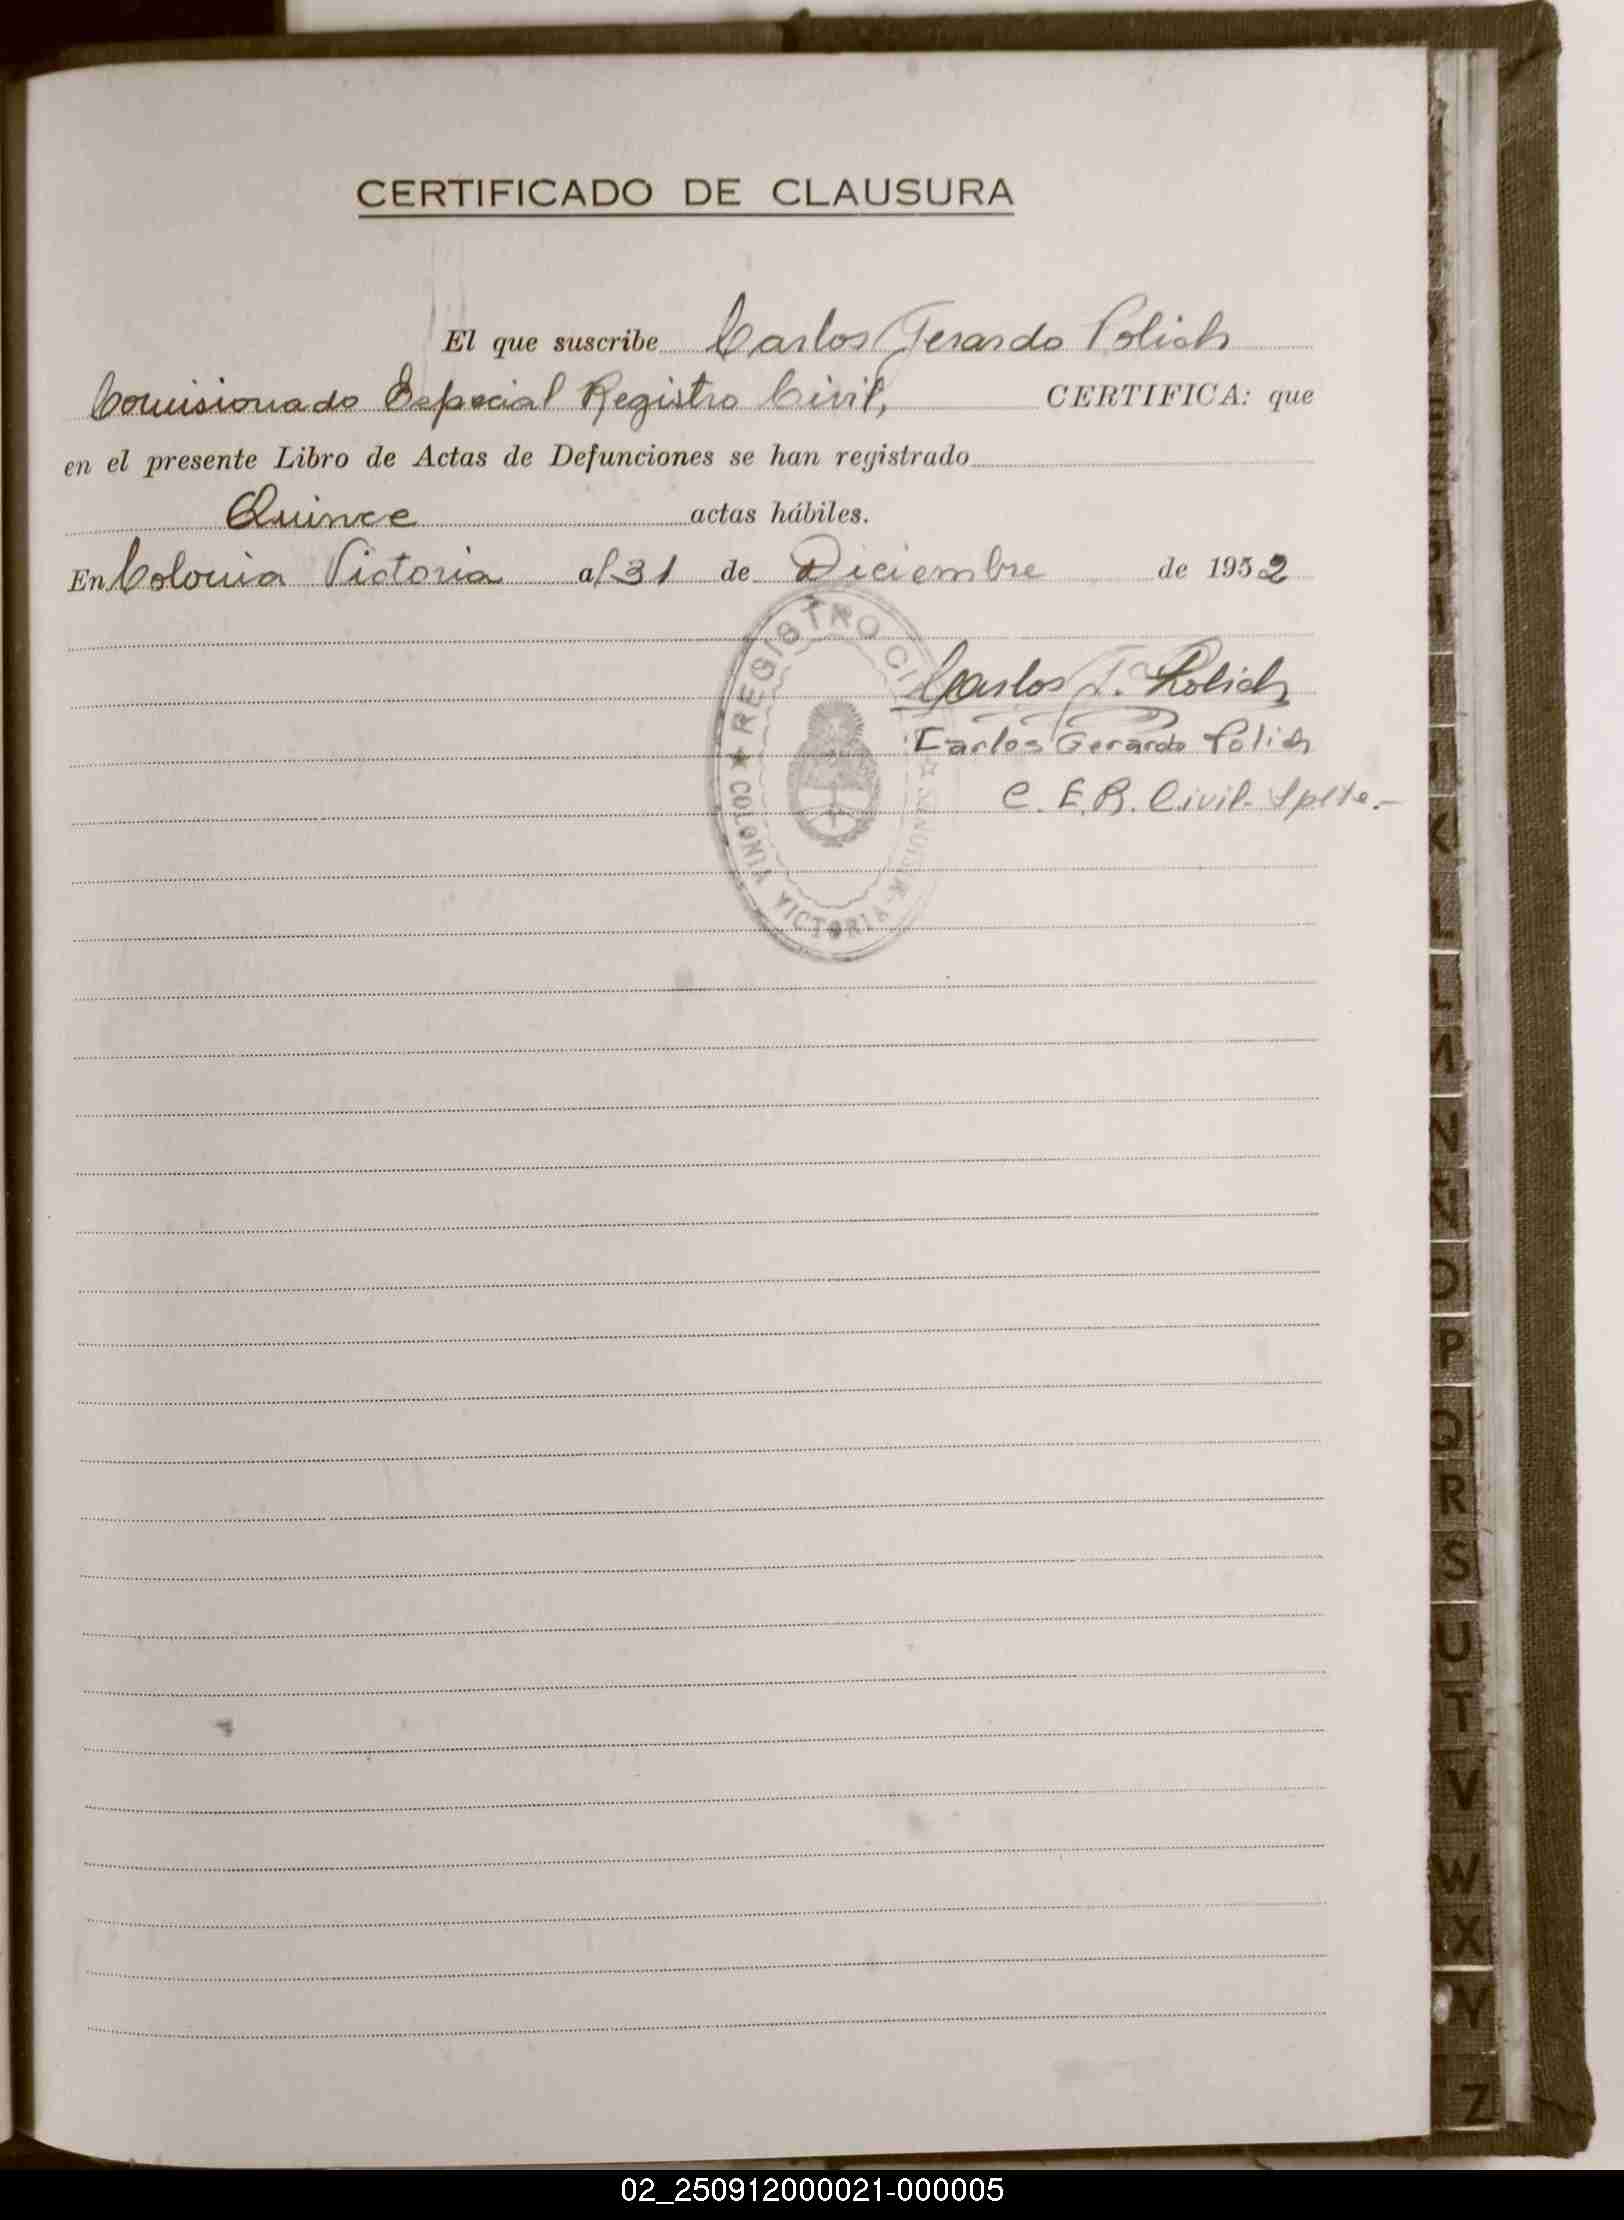 CERTIFICADO DE CLAUSURA
El que suscribe Carlos Gerardo Polich
Comisionado Especial Registro Civil, CERTIFICA: que
en el presente Libro de Actas de Defunciones se han registrado
Quince actas hábiles.
En Colonia Victoria al 31 de Diciembre de 1952
REGISTRO CI
COLONIA VICTORIA - MISIONES
Carlos G. Polich
Carlos Gerardo Polich
C. E. R. Civil. Splte.-
K
L
N
Ñ
O
P
Q
R
S
U
T
V
W
X
Y
Z
02_250912000021-000005